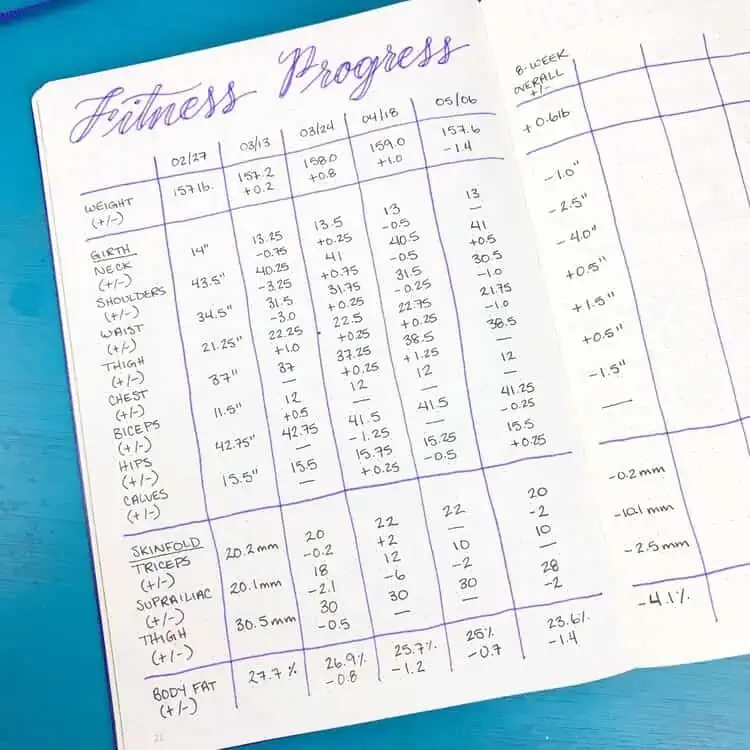 Fitness Progress
02/27 03/13 03/24 04/18 05/06 8-WEEK OVERALL +/-
WEIGHT 157 lb. 157.2 158.0 159.0 157.6 +0.6lb
(+/-) +0.2 +0.8 +1.0 -1.4
GIRTH
NECK 14" 13.25 13.5 13 13 -1.0"
(+/-) -0.75 +0.25 -0.5 —
SHOULDERS 43.5" 40.25 41 40.5 41 -2.5"
(+/-) -3.25 +0.75 -0.5 +0.5
WAIST 34.5" 31.5 31.75 31.5 30.5 -4.0"
(+/-) -3.0 +0.25 -0.25 -1.0
THIGH 21.25" 22.25 22.5 22.75 21.75 +0.5"
(+/-) +1.0 +0.25 +0.25 -1.0
CHEST 37" 37 37.25 38.5 38.5 +1.5"
(+/-) — +0.25 +1.25 —
BICEPS 11.5" 12 12 12 12 +0.5"
(+/-) +0.5 — — —
HIPS 42.75" 42.75 41.5 41.5 41.25 -1.5"
(+/-) — -1.25 — -0.25
CALVES 15.5" 15.5 15.75 15.25 15.5 —
(+/-) — +0.25 -0.5 +0.25
SKINFOLD
TRICEPS 20.2mm 20 22 22 20 -0.2mm
(+/-) -0.2 +2 — -2
SUPRAILIAC 20.1mm 18 12 10 10 -10.1mm
(+/-) -2.1 -6 -2 —
THIGH 30.5mm 30 30 30 28 -2.5mm
(+/-) -0.5 — — -2
BODY FAT 27.7% 26.9% 25.7% 25% 23.6% -4.1%
(+/-) -0.8 -1.2 -0.7 -1.4